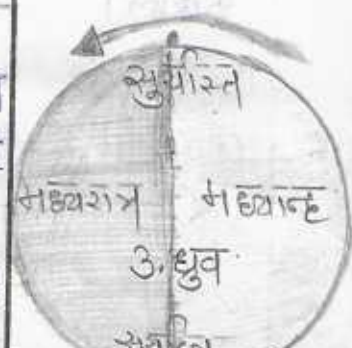 सुर्यास्त
मध्यरात्र मध्यान्ह
उ. ध्रुव